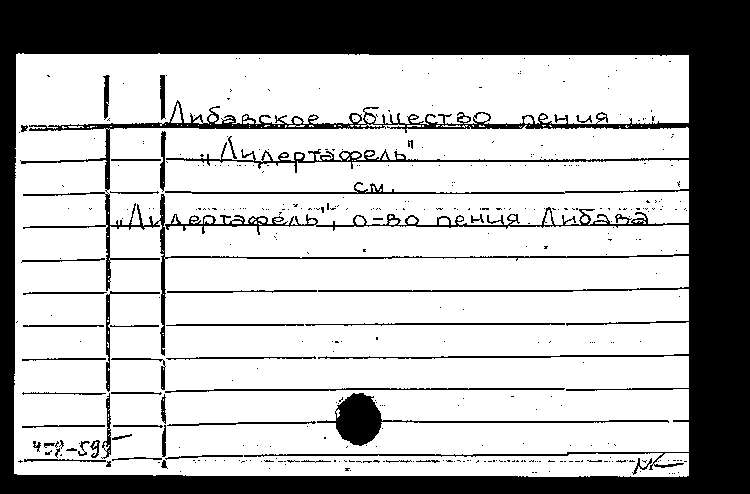 Либавское общество пения
„Лидертафель"
см.
„Лидертафель", о-во пения Либава